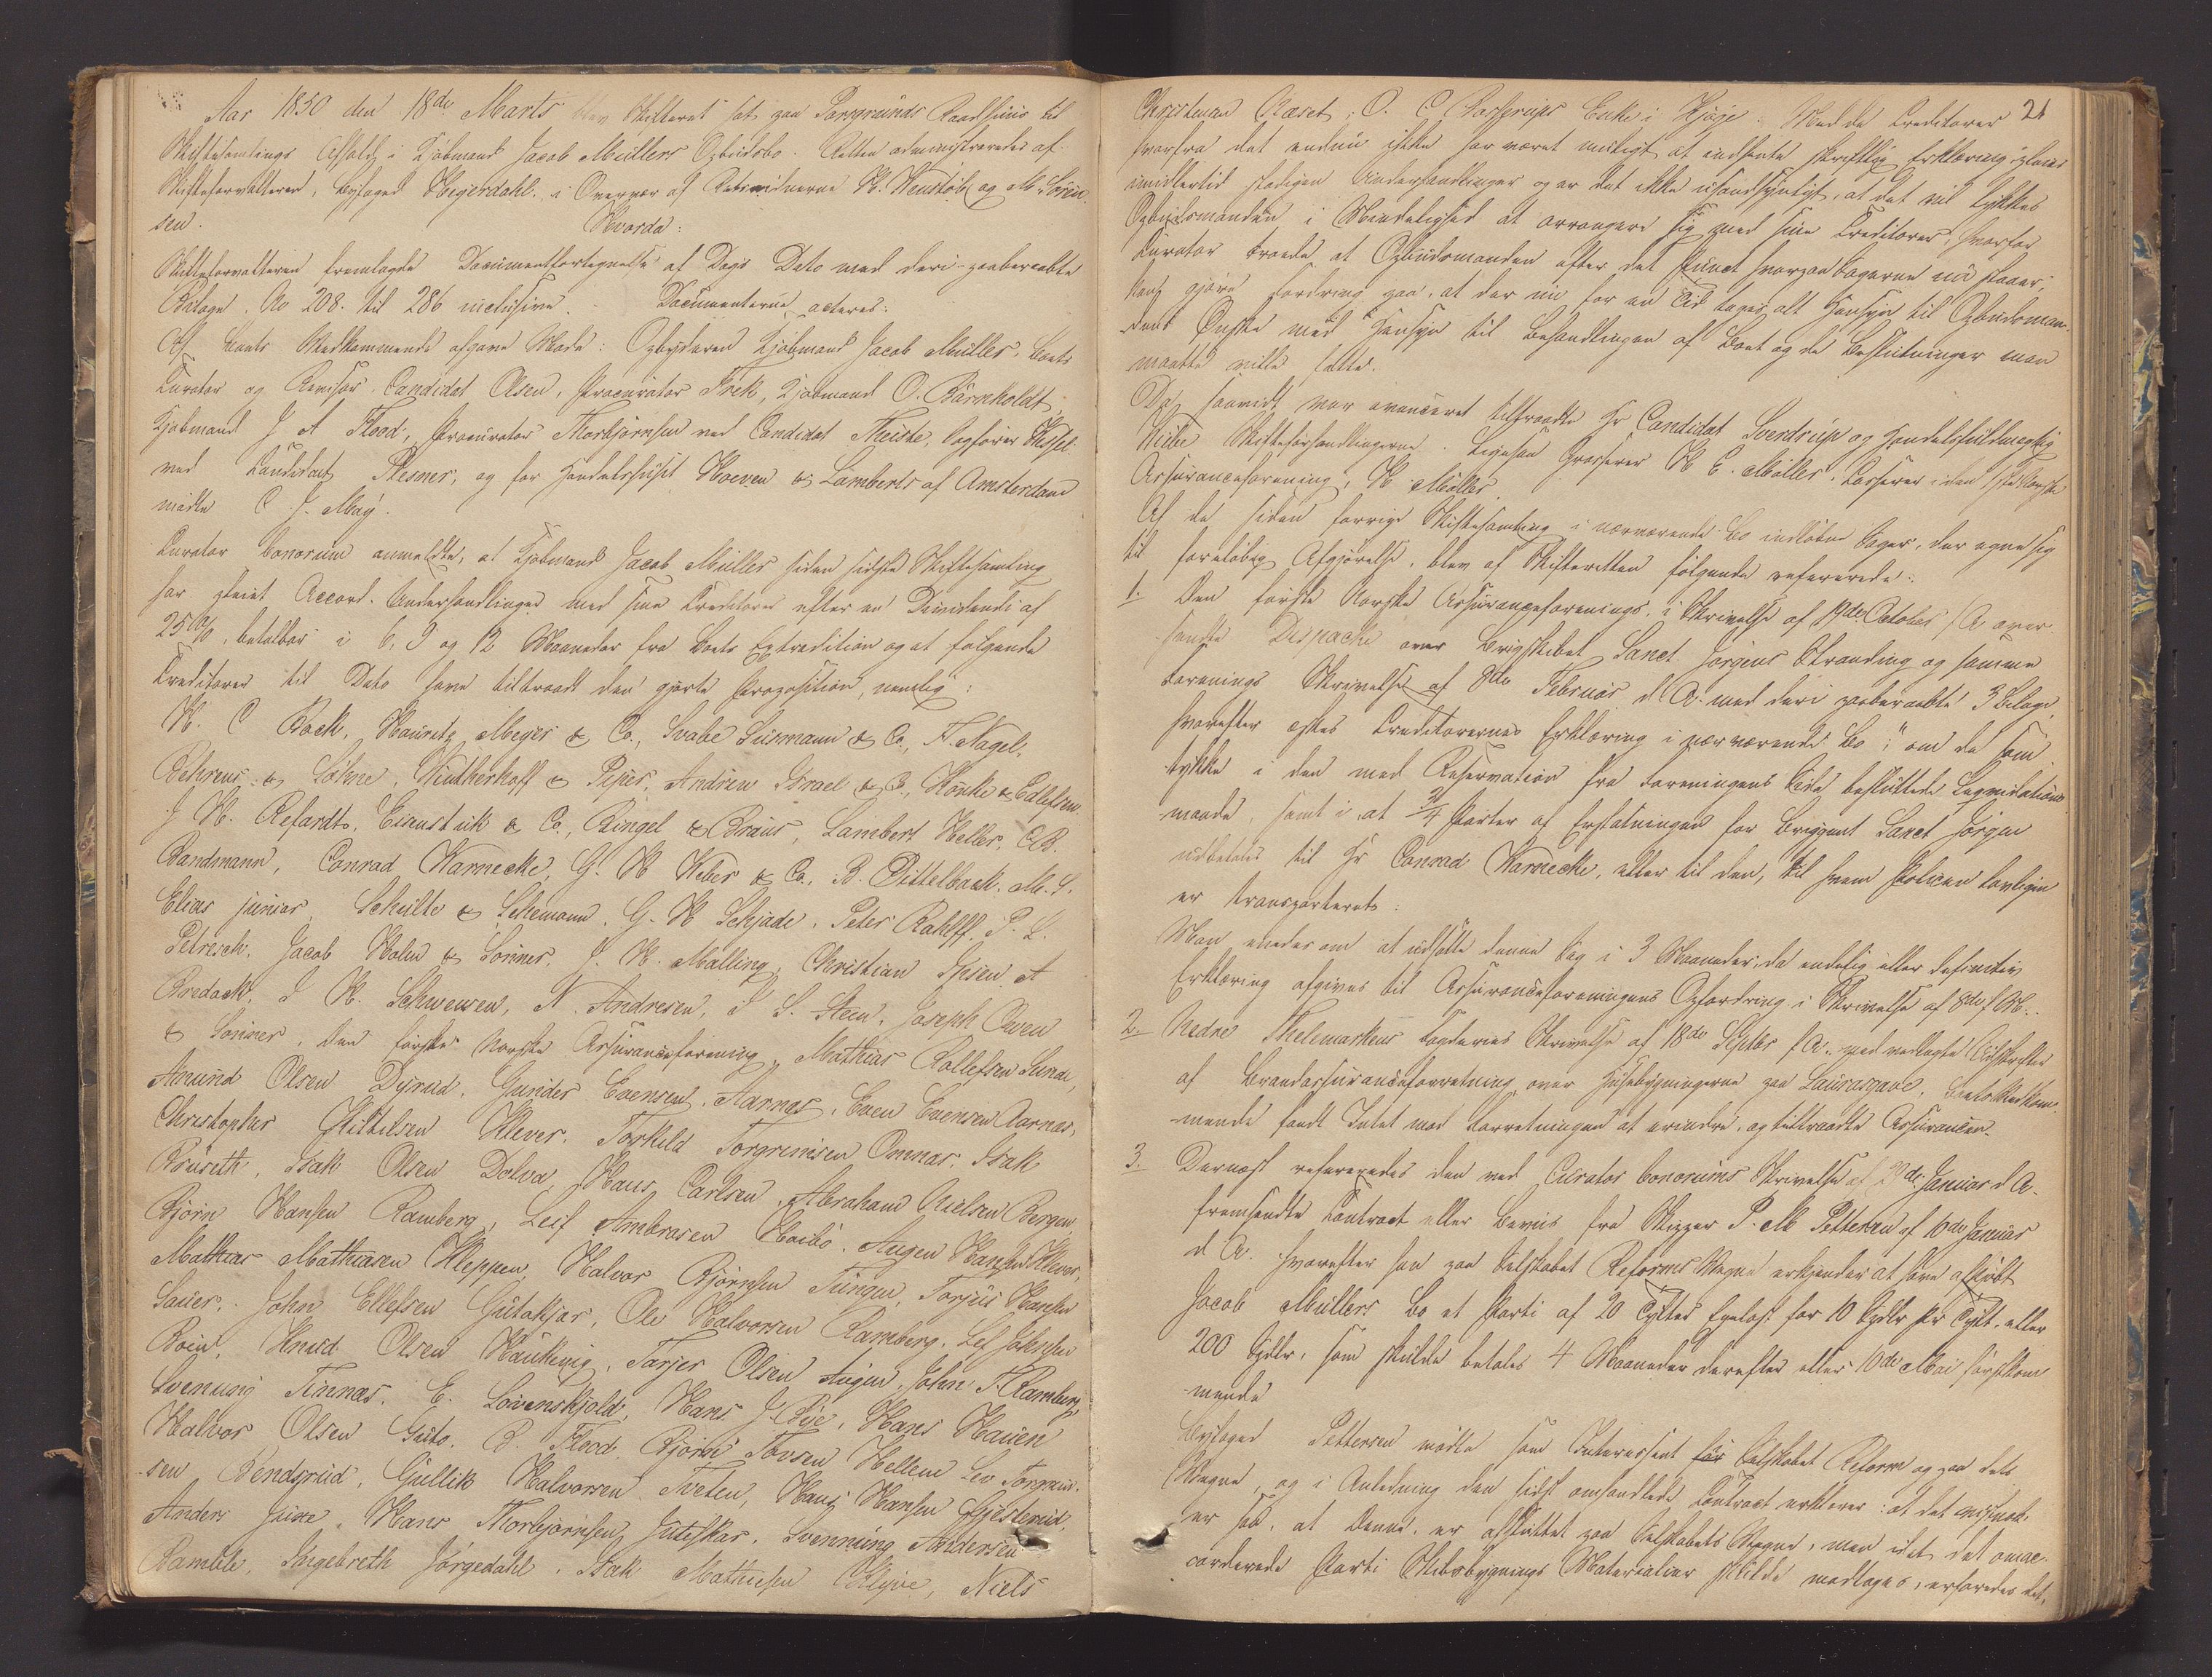 Aar 1850 den 18de Marts blev Skifteret sat paa Porsgrunds Raadhuus til
Skiftesamlings Afhold i Kjøbmand Jacob Müllers Opbudsbo. Retten administreredes af
Skifteforvalteren, Byfoged Heyerdahl, i Overvær af Retsvidnerne H. Wenstøb og M. Sören-
sen. Hvorda:
Skifteforvalteren fremlagde Documentfortegnelse af Dags Dato med deri paaberaabte
Bilage No 208 til 286 inclusive. Documenterne acteres:
Af Boets Vedkommende afgave Møde: Opbyderen Kjøbmand Jacob Müller, Boets
Curator og Revisor Candidat Olsen, Procurator Frick, Kjøbmand O. Bärnholdt,
Kjøbmand J A Flood, Procurator Thorbjørnsen ved Candidat Theiste, Sagfører
ved Candidat Plesner, og for Handelshuset Hoeven & Lamberts af Amsterdam
mødte C J. May.
Curator bonorum anmeldte, at Kjøbmand Jacob Müller siden sidste Skiftesamling
har pleiet Accord-Underhandlinger med sine Creditorer efter en Dividende af
25 %, betalbar i 6, 9 og 12 Maaneder fra Boets Extradition og at følgende
Creditorer til Dato have tiltraadt den gjorte Proposition, nemlig:
H. C Bock, Hauritz Meyer & Co., Svabe Susmann & Co., F. Nagel,
Behrens & Söhne, Wütherhoff & Pejer, Andrew Israel & Co., Hönke &
J H. Refardt, & Co., Ringel & Braus, Lambert Heller, C B.
Bandmann, Conrad Warnecke, G. H Weber & Co., B. Dittelback, M. S.
Elias junior, Schulte & Schemann, G. H Schjade, Peter Rahlff, P. L.
Petresch, Jacob Holm & Sønner, J. H. Malling, Christian Ipsen, A
Bredack, I H. Schwensen, N. Andresen, S. Steen, Joseph Owen
& Sønner, den første Norske Assuranceforening, Mathias Rollefsen Sunde,
Amund Olsen Dyrud, Gunder Evensen Aarnæs, Even Evensen Aarnæs,
Christopher Kittilsen Klever, Torkild Torgrimsen Omnæs, Isak
Bruseth, Isak Olsen Dolva, Hans Carlsen, Abraham Nielsen Bergen,
Bjørn Hansen Ramberg, Leif Ambrosen Haibø, Augen Hansen Klever,
Mathias Mathiasen Kleppen, Halvor Bjørnsen Tungen, Torjus Hansen
Sauer, John Ellefsen Gutakjær, Ole Halvorsen Ramberg, Lef Johnsen
Boein, Knud Olsen Haukenig, Tarjer Olsen Augen, John T. Ramberg,
Svenung Tinnæs, E. Løvenskjold, Hans J Bye, Hans Hauen
Halvor Olsen Guto, B. Flood, Bjørn Tovsen Hellem Lev Torgrim-
sen Bendsrud, Gullik Halvorsen Tveten, Hans Hansen Gjesterud,
Anders Juve, Hans Thorbjørnsen Juteskar, Svenning Andersen
Bamble, Ingebreth Jørgedahl, Isak Mathiesen Klyve, Niels
21
Christensen Raset, O. C Enke i Kjøge. Med de Creditorer
hvorfra det endnu ikke har været muligt at indhente skriftlig Erklæring pleies
imidlertid stadigen Underhandlinger og er det ikke usandsynligt, at det vil lykkes
Opbudsmanden i Mindelighed at arrangere sig med sine Creditorer, hvorfor
Curator troede at Opbudsmanden efter det Punct hvorpaa Sagerne nu staaer,
kan gjøre Fordring paa, at der nu for en Tid tages alt Hensyn til Opbudsman-
dens Ønske med Hensyn til Behandlingen af Boet og de Beslutninger man
maatte ville fatte.
Da saavidt var avanceret tiltraadte Hr Candidat Sverdrup og Handelsfuldmægtig
Wiibe Skifteforhandlingerne. Ligesaa Grosserer N E. Møller, Casserer i den 1ste Norske
Assuranceforening, N. Møller.
Af de siden forrige Skiftesamling i nærværende Bo indløbne Sager, der egne sig
til foreløbig Afgjørelse, blev af Skifteretten følgende refererede:
1. Den første Norske Assuranceforenings, i Skrivelse af 19de October f A. over-
sendte Dispache over Brigskibet Sanct Jørgens Stranding og samme
Forenings Skrivelse af 8de Februar d. A. med deri paaberaabte 3 Bilage,
hvorefter æskes Creditorernes Erklæring i nærværende Bo: "om de sam-
tykke i den med Reservation fra Foreningens Side besluttede Liqvidations-
maade, samt i at 3/4 Parter af Erstatningen for Briggen Sanct Jørgen
udbetales til Hr Conrad Warnecke, eller til den, til hvem Policen lovligen
er transporteret:
Man enedes om at udsætte denne Sag i 3 Maaneder, da endelig eller definitiv
Erklæring afgives til Assuranceforeningens Opfordring i Skrivelse af 8de f. M.
2. Nedre Thelemarkens Fogderies Skrivelse af 18de Septbr f A. med vedlagte Udskrifter
af Brandassuranceforretning over Huusbygningerne paa Laurasgave. Boets Vedkom-
mende fandt Intet mod Forretningen at erindre, og tiltraadte Assurancen.
3. Dernæst refereredes den ved Curator bonorums Skrivelse af de Januar d A.
fremsendte Contract eller Bevis fra Skipper P. M Pettersen af 10de Januar
d A. hvorefter han paa Selskabet Reforms Vegne erkjender at have afkjøbt
Jacob Müllers Bo et Parti af 20 Tylter Egelast for 10 Spdlr pr Tylt, eller
200 Spdlr, som skulde betales 4 Maaneder derefter eller 10de Mai førstkom-
mende
Byfoged Pettersen mødte som Interessent for Selskabet Reform og paa dets
Vegne, og i Anledning den sidst omhandlede Contract erklærer: at det vistnok
er saa, at denne er afsluttet paa Selskabets Vegne, men idet det omac-
corderede Parti Skibsbygnings Materialier skulde modtages, erfaredes det,